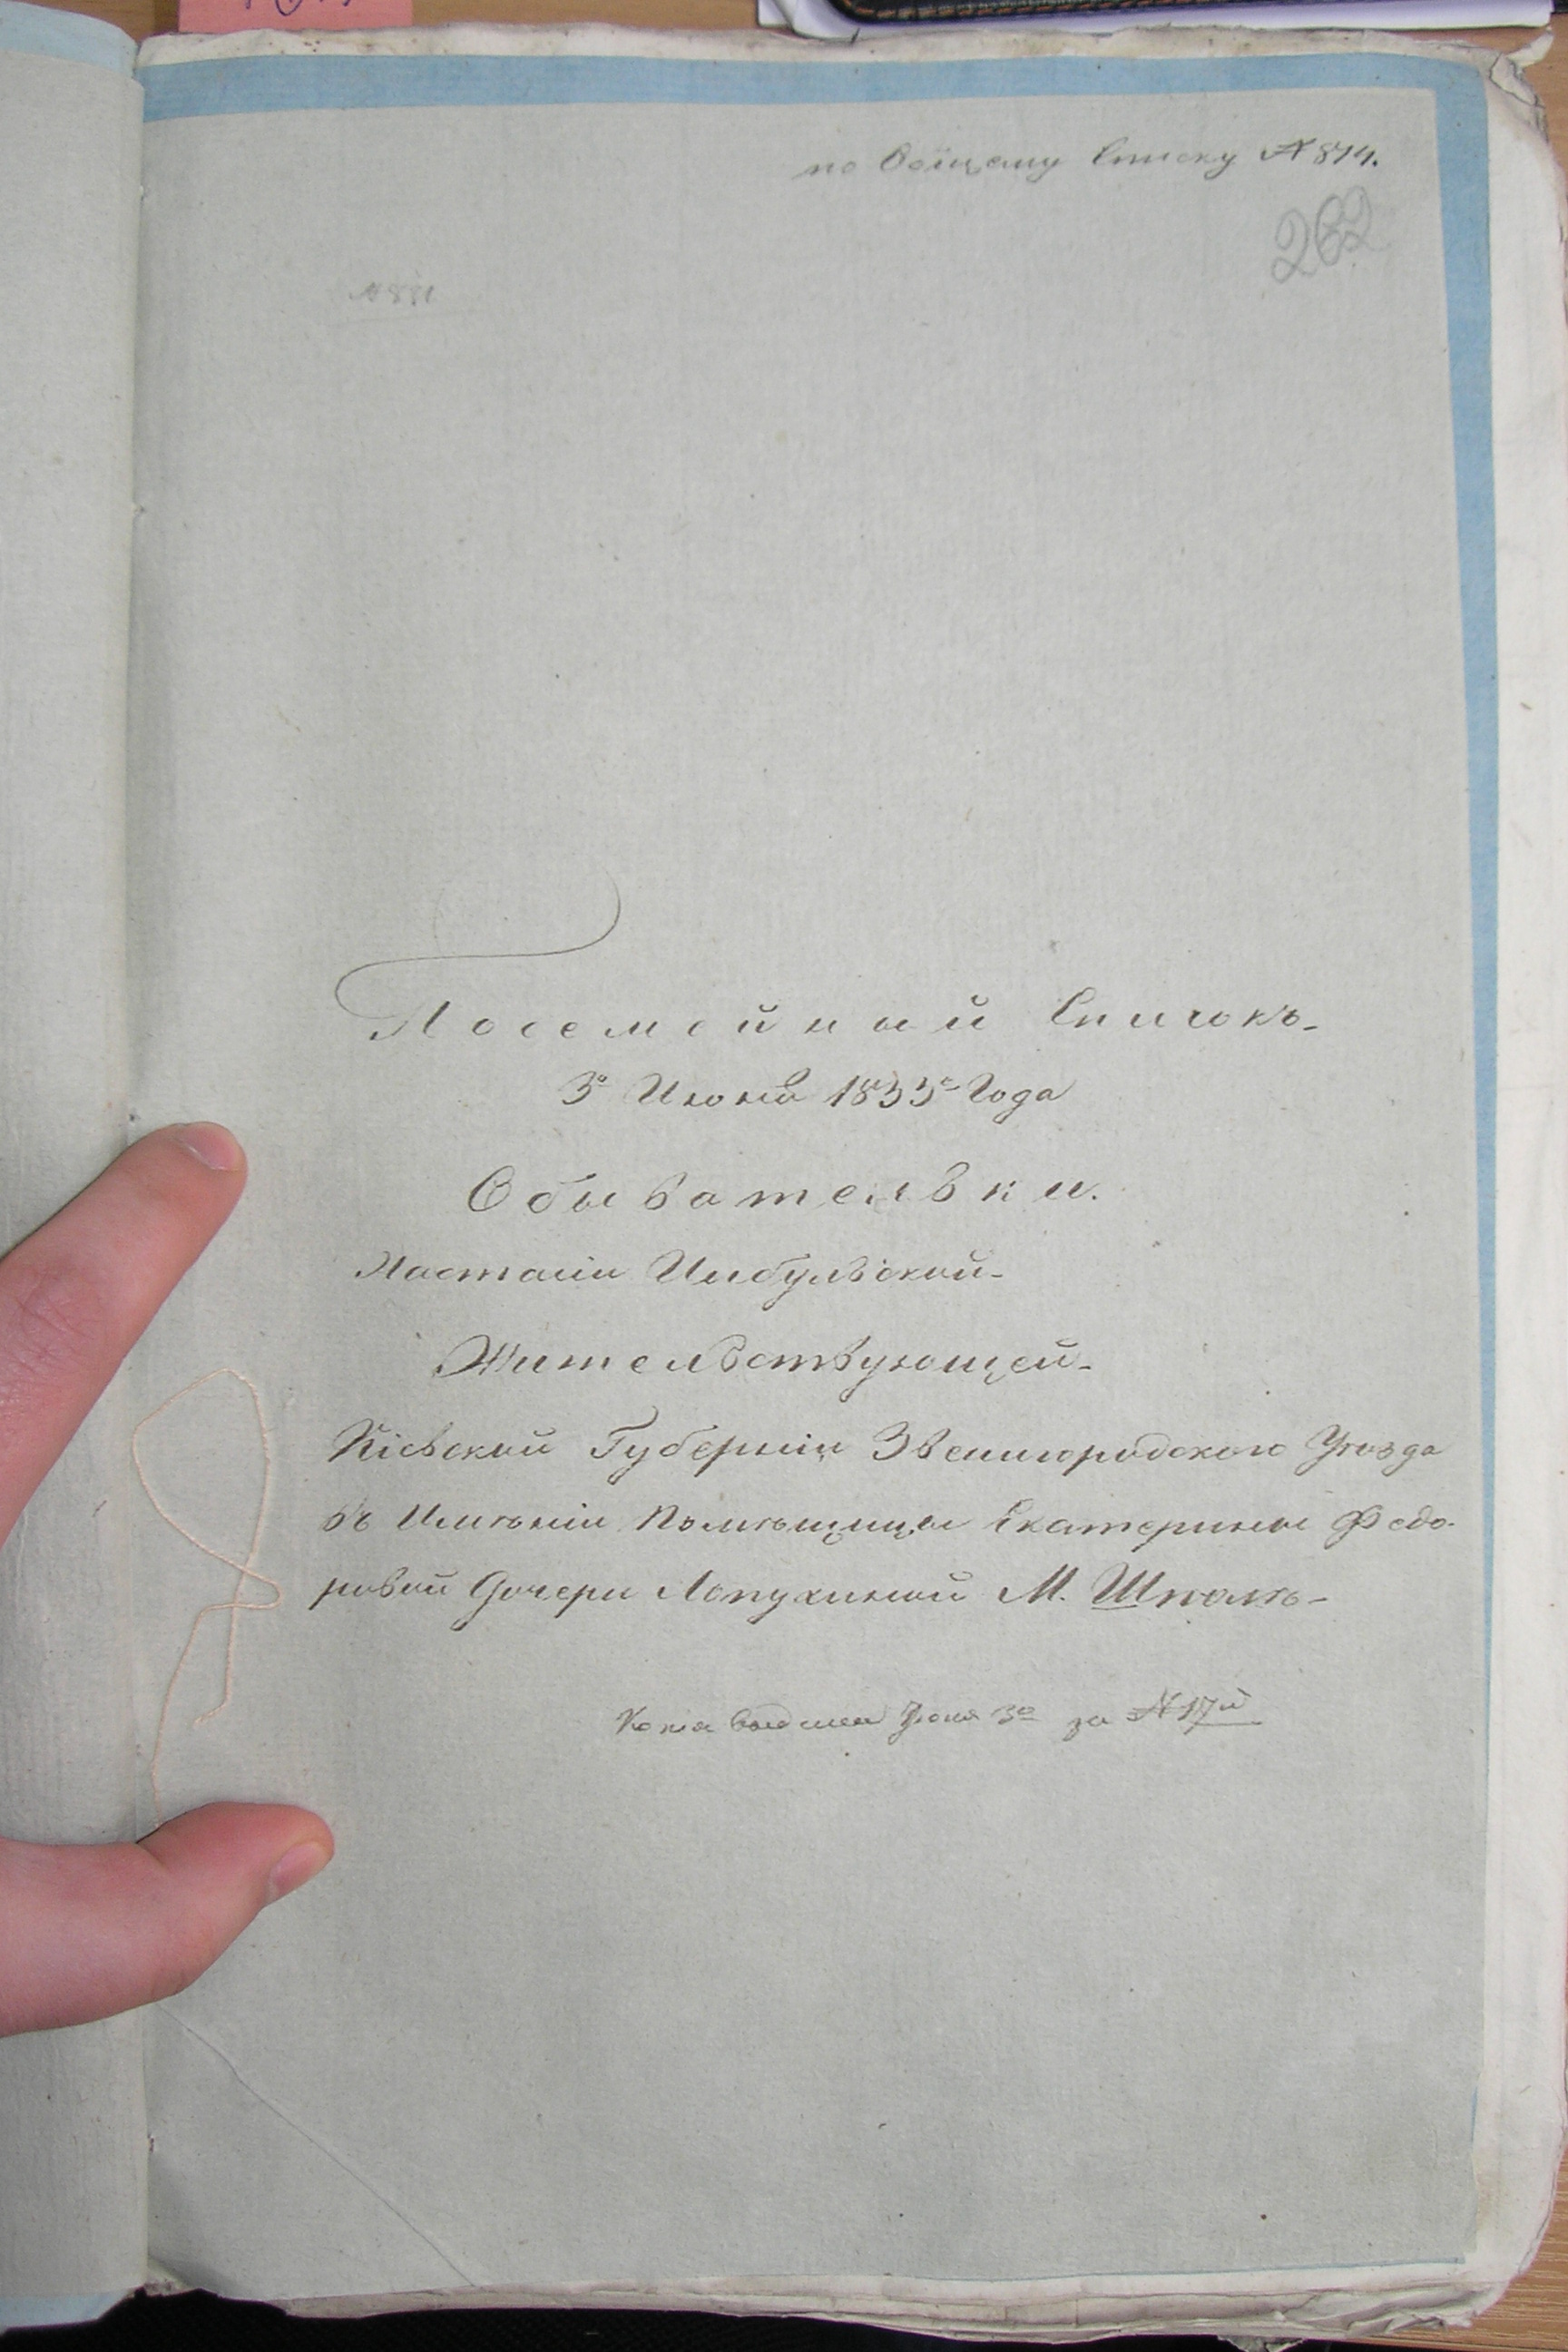 по Общему Списку № 874.
262
№ 881
Посемейный Списокъ-
3º Июня 1833º Года
Обывательки.
Настасіи Цыбульской-
Жительствующей-
Кіевской Губерніи Звенигородского Уѣзда
въ Имѣніи Помѣщицы Екатерины Федо-
ровой Дочери Лопухиной М. Шполѣ-
Июня 3º за № 17й